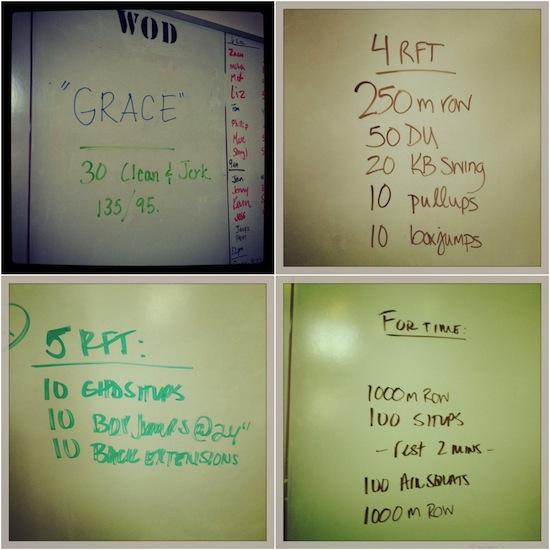 WOD
"GRACE"
30 Clean & Jerk
135/95.
Liz
Tom
Phillip
Jen
Jenny
Kevin
Jeff
4 RFT
250 m row
50 DU
20 KB Swing
10 pullups
10 boxjumps
5 RFT:
10 GHD SITUPS
10 BOX Jumps @ 24"
10 BACK EXTENSIONS
FOR TIME:
1000 m ROW
100 SITUPS
- rest 2 mins -
100 AIR SQUATS
1000 m ROW